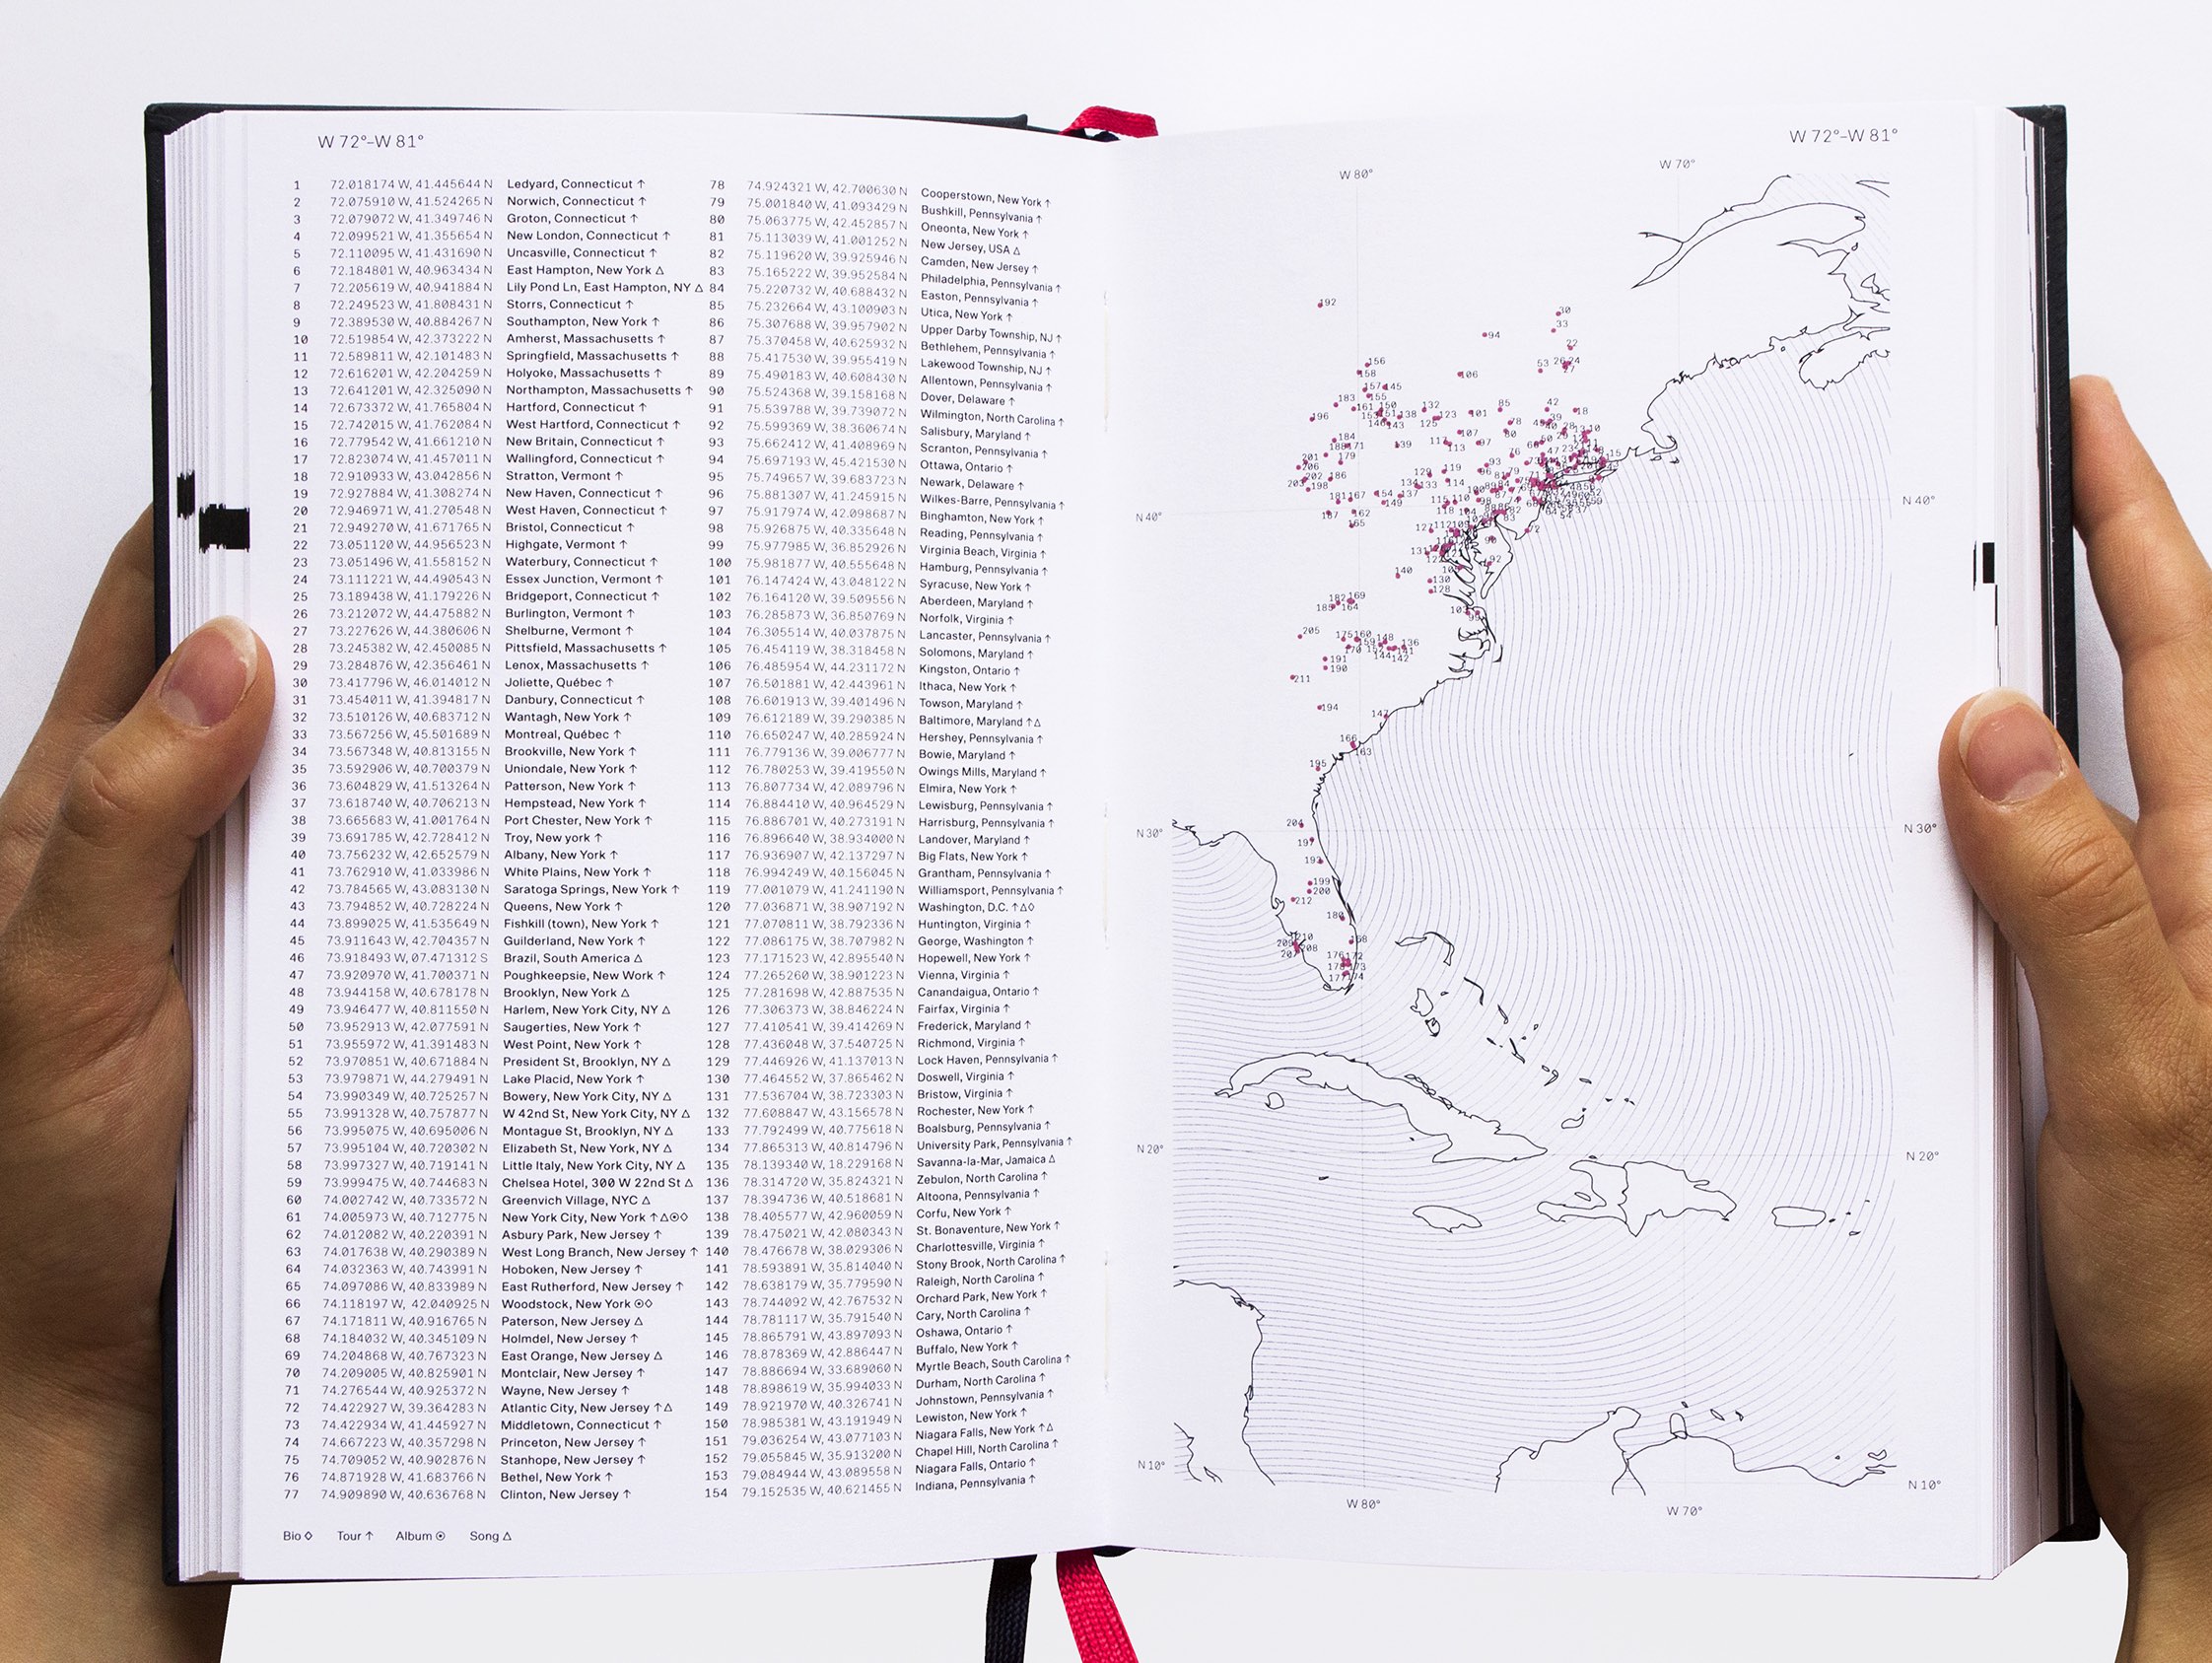 W 72°–W 81°
1 72.018174 W, 41.445644 N Ledyard, Connecticut ↑
2 72.075910 W, 41.524265 N Norwich, Connecticut ↑
3 72.079072 W, 41.349746 N Groton, Connecticut ↑
4 72.099521 W, 41.355654 N New London, Connecticut ↑
5 72.110095 W, 41.431690 N Uncasville, Connecticut ↑
6 72.184801 W, 40.963434 N East Hampton, New York △
7 72.205619 W, 40.941884 N Lily Pond Ln, East Hampton, NY △
8 72.249523 W, 41.808431 N Storrs, Connecticut ↑
9 72.389530 W, 40.884267 N Southampton, New York ↑
10 72.519854 W, 42.373222 N Amherst, Massachusetts ↑
11 72.589811 W, 42.101483 N Springfield, Massachusetts ↑
12 72.616201 W, 42.204259 N Holyoke, Massachusetts ↑
13 72.641201 W, 42.325090 N Northampton, Massachusetts ↑
14 72.673372 W, 41.765804 N Hartford, Connecticut ↑
15 72.742015 W, 41.762084 N West Hartford, Connecticut ↑
16 72.779542 W, 41.661210 N New Britain, Connecticut ↑
17 72.823074 W, 41.457011 N Wallingford, Connecticut ↑
18 72.910933 W, 43.042856 N Stratton, Vermont ↑
19 72.927884 W, 41.308274 N New Haven, Connecticut ↑
20 72.946971 W, 41.270548 N West Haven, Connecticut ↑
21 72.949270 W, 41.671765 N Bristol, Connecticut ↑
22 73.051120 W, 44.956523 N Highgate, Vermont ↑
23 73.051496 W, 41.558152 N Waterbury, Connecticut ↑
24 73.111221 W, 44.490543 N Essex Junction, Vermont ↑
25 73.189438 W, 41.179226 N Bridgeport, Connecticut ↑
26 73.212072 W, 44.475882 N Burlington, Vermont ↑
27 73.227626 W, 44.380606 N Shelburne, Vermont ↑
28 73.245382 W, 42.450085 N Pittsfield, Massachusetts ↑
29 73.284876 W, 42.356461 N Lenox, Massachusetts ↑
30 73.417796 W, 46.014012 N Joliette, Québec ↑
31 73.454011 W, 41.394817 N Danbury, Connecticut ↑
32 73.510126 W, 40.683712 N Wantagh, New York ↑
33 73.567256 W, 45.501689 N Montreal, Québec ↑
34 73.567348 W, 40.813155 N Brookville, New York ↑
35 73.592906 W, 40.700379 N Uniondale, New York ↑
36 73.604829 W, 41.513264 N Patterson, New York ↑
37 73.618740 W, 40.706213 N Hempstead, New York ↑
38 73.665683 W, 41.001764 N Port Chester, New York ↑
39 73.691785 W, 42.728412 N Troy, New york ↑
40 73.756232 W, 42.652579 N Albany, New York ↑
41 73.762910 W, 41.033986 N White Plains, New York ↑
42 73.784565 W, 43.083130 N Saratoga Springs, New York ↑
43 73.794852 W, 40.728224 N Queens, New York ↑
44 73.899025 W, 41.535649 N Fishkill (town), New York ↑
45 73.911643 W, 42.704357 N Guilderland, New York ↑
46 73.918493 W, 07.471312 S Brazil, South America △
47 73.920970 W, 41.700371 N Poughkeepsie, New Work ↑
48 73.944158 W, 40.678178 N Brooklyn, New York △
49 73.946477 W, 40.811550 N Harlem, New York City, NY △
50 73.952913 W, 42.077591 N Saugerties, New York ↑
51 73.955972 W, 41.391483 N West Point, New York ↑
52 73.970851 W, 40.671884 N President St, Brooklyn, NY △
53 73.979871 W, 44.279491 N Lake Placid, New York ↑
54 73.990349 W, 40.725257 N Bowery, New York City, NY △
55 73.991328 W, 40.757877 N W 42nd St, New York City, NY △
56 73.995075 W, 40.695006 N Montague St, Brooklyn, NY △
57 73.995104 W, 40.720302 N Elizabeth St, New York, NY △
58 73.997327 W, 40.719141 N Little Italy, New York City, NY △
59 73.999475 W, 40.744683 N Chelsea Hotel, 300 W 22nd St △
60 74.002742 W, 40.733572 N Greenvich Village, NYC △
61 74.005973 W, 40.712775 N New York City, New York ↑△⊙◇
62 74.012082 W, 40.220391 N Asbury Park, New Jersey ↑
63 74.017638 W, 40.290389 N West Long Branch, New Jersey ↑
64 74.032363 W, 40.743991 N Hoboken, New Jersey ↑
65 74.097086 W, 40.833989 N East Rutherford, New Jersey ↑
66 74.118197 W, 42.040925 N Woodstock, New York ⊙◇
67 74.171811 W, 40.916765 N Paterson, New Jersey △
68 74.184032 W, 40.345109 N Holmdel, New Jersey ↑
69 74.204868 W, 40.767323 N East Orange, New Jersey △
70 74.209005 W, 40.825901 N Montclair, New Jersey ↑
71 74.276544 W, 40.925372 N Wayne, New Jersey ↑
72 74.422927 W, 39.364283 N Atlantic City, New Jersey ↑△
73 74.422934 W, 41.445927 N Middletown, Connecticut ↑
74 74.667223 W, 40.357298 N Princeton, New Jersey ↑
75 74.709052 W, 40.902876 N Stanhope, New Jersey ↑
76 74.871928 W, 41.683766 N Bethel, New York ↑
77 74.909890 W, 40.636768 N Clinton, New Jersey ↑
78 74.924321 W, 42.700630 N Cooperstown, New York ↑
79 75.001840 W, 41.093429 N Bushkill, Pennsylvania ↑
80 75.063775 W, 42.452857 N Oneonta, New York ↑
81 75.113039 W, 41.001252 N New Jersey, USA △
82 75.119620 W, 39.925946 N Camden, New Jersey ↑
83 75.165222 W, 39.952584 N Philadelphia, Pennsylvania ↑
84 75.220732 W, 40.688432 N Easton, Pennsylvania ↑
85 75.232664 W, 43.100903 N Utica, New York ↑
86 75.307688 W, 39.957902 N Upper Darby Township, NJ ↑
87 75.370458 W, 40.625932 N Bethlehem, Pennsylvania ↑
88 75.417530 W, 39.955419 N Lakewood Township, NJ ↑
89 75.490183 W, 40.608430 N Allentown, Pennsylvania ↑
90 75.524368 W, 39.158168 N Dover, Delaware ↑
91 75.539788 W, 39.739072 N Wilmington, North Carolina ↑
92 75.599369 W, 38.360674 N Salisbury, Maryland ↑
93 75.662412 W, 41.408969 N Scranton, Pennsylvania ↑
94 75.697193 W, 45.421530 N Ottawa, Ontario ↑
95 75.749657 W, 39.683723 N Newark, Delaware ↑
96 75.881307 W, 41.245915 N Wilkes-Barre, Pennsylvania ↑
97 75.917974 W, 42.098687 N Binghamton, New York ↑
98 75.926875 W, 40.335648 N Reading, Pennsylvania ↑
99 75.977985 W, 36.852926 N Virginia Beach, Virginia ↑
100 75.981877 W, 40.555648 N Hamburg, Pennsylvania ↑
101 76.147424 W, 43.048122 N Syracuse, New York ↑
102 76.164120 W, 39.509556 N Aberdeen, Maryland ↑
103 76.285873 W, 36.850769 N Norfolk, Virginia ↑
104 76.305514 W, 40.037875 N Lancaster, Pennsylvania ↑
105 76.454119 W, 38.318458 N Solomons, Maryland ↑
106 76.485954 W, 44.231172 N Kingston, Ontario ↑
107 76.501881 W, 42.443961 N Ithaca, New York ↑
108 76.601913 W, 39.401496 N Towson, Maryland ↑
109 76.612189 W, 39.290385 N Baltimore, Maryland ↑△
110 76.650247 W, 40.285924 N Hershey, Pennsylvania ↑
111 76.779136 W, 39.006777 N Bowie, Maryland ↑
112 76.780253 W, 39.419550 N Owings Mills, Maryland ↑
113 76.807734 W, 42.089796 N Elmira, New York ↑
114 76.884410 W, 40.964529 N Lewisburg, Pennsylvania ↑
115 76.886701 W, 40.273191 N Harrisburg, Pennsylvania ↑
116 76.896640 W, 38.934000 N Landover, Maryland ↑
117 76.936907 W, 42.137297 N Big Flats, New York ↑
118 76.994249 W, 40.156045 N Grantham, Pennsylvania ↑
119 77.001079 W, 41.241190 N Williamsport, Pennsylvania ↑
120 77.036871 W, 38.907192 N Washington, D.C. ↑△◇
121 77.070811 W, 38.792336 N Huntington, Virginia ↑
122 77.086175 W, 38.707982 N George, Washington ↑
123 77.171523 W, 42.895540 N Hopewell, New York ↑
124 77.265260 W, 38.901223 N Vienna, Virginia ↑
125 77.281698 W, 42.887535 N Canandaigua, Ontario ↑
126 77.306373 W, 38.846224 N Fairfax, Virginia ↑
127 77.410541 W, 39.414269 N Frederick, Maryland ↑
128 77.436048 W, 37.540725 N Richmond, Virginia ↑
129 77.446926 W, 41.137013 N Lock Haven, Pennsylvania ↑
130 77.464552 W, 37.865462 N Doswell, Virginia ↑
131 77.536704 W, 38.723303 N Bristow, Virginia ↑
132 77.608847 W, 43.156578 N Rochester, New York ↑
133 77.792499 W, 40.775618 N Boalsburg, Pennsylvania ↑
134 77.865313 W, 40.814796 N University Park, Pennsylvania ↑
135 78.139340 W, 18.229168 N Savanna-la-Mar, Jamaica △
136 78.314720 W, 35.824321 N Zebulon, North Carolina ↑
137 78.394736 W, 40.518681 N Altoona, Pennsylvania ↑
138 78.405577 W, 42.960059 N Corfu, New York ↑
139 78.475021 W, 42.080343 N St. Bonaventure, New York ↑
140 78.476678 W, 38.029306 N Charlottesville, Virginia ↑
141 78.593891 W, 35.814040 N Stony Brook, North Carolina ↑
142 78.638179 W, 35.779590 N Raleigh, North Carolina ↑
143 78.744092 W, 42.767532 N Orchard Park, New York ↑
144 78.781117 W, 35.791540 N Cary, North Carolina ↑
145 78.865791 W, 43.897093 N Oshawa, Ontario ↑
146 78.878369 W, 42.886447 N Buffalo, New York ↑
147 78.886694 W, 33.689060 N Myrtle Beach, South Carolina ↑
148 78.898619 W, 35.994033 N Durham, North Carolina ↑
149 78.921970 W, 40.326741 N Johnstown, Pennsylvania ↑
150 78.985381 W, 43.191949 N Lewiston, New York ↑
151 79.036254 W, 43.077103 N Niagara Falls, New York ↑△
152 79.055845 W, 35.913200 N Chapel Hill, North Carolina ↑
153 79.084944 W, 43.089558 N Niagara Falls, Ontario ↑
154 79.152535 W, 40.621455 N Indiana, Pennsylvania ↑
Bio ◇ Tour ↑ Album ⊙ Song △
W 72°–W 81°
W 80° W 70°
192
30
33
94
22
156
53
158
106
183
132
85
42
18
196
138
123
101
78
184
139
107
97
113
179
201
206
119
93
202
186
114
198
149
187
162
165
N 40° N 40°
140
130
128
182 169
185 164
205
148
136
142
191
190
211
194
147
166
163
195
204
N 30° N 30°
197
193
199
200
212
180
210
208
N 20° N 20°
N 10° N 10°
W 80° W 70°